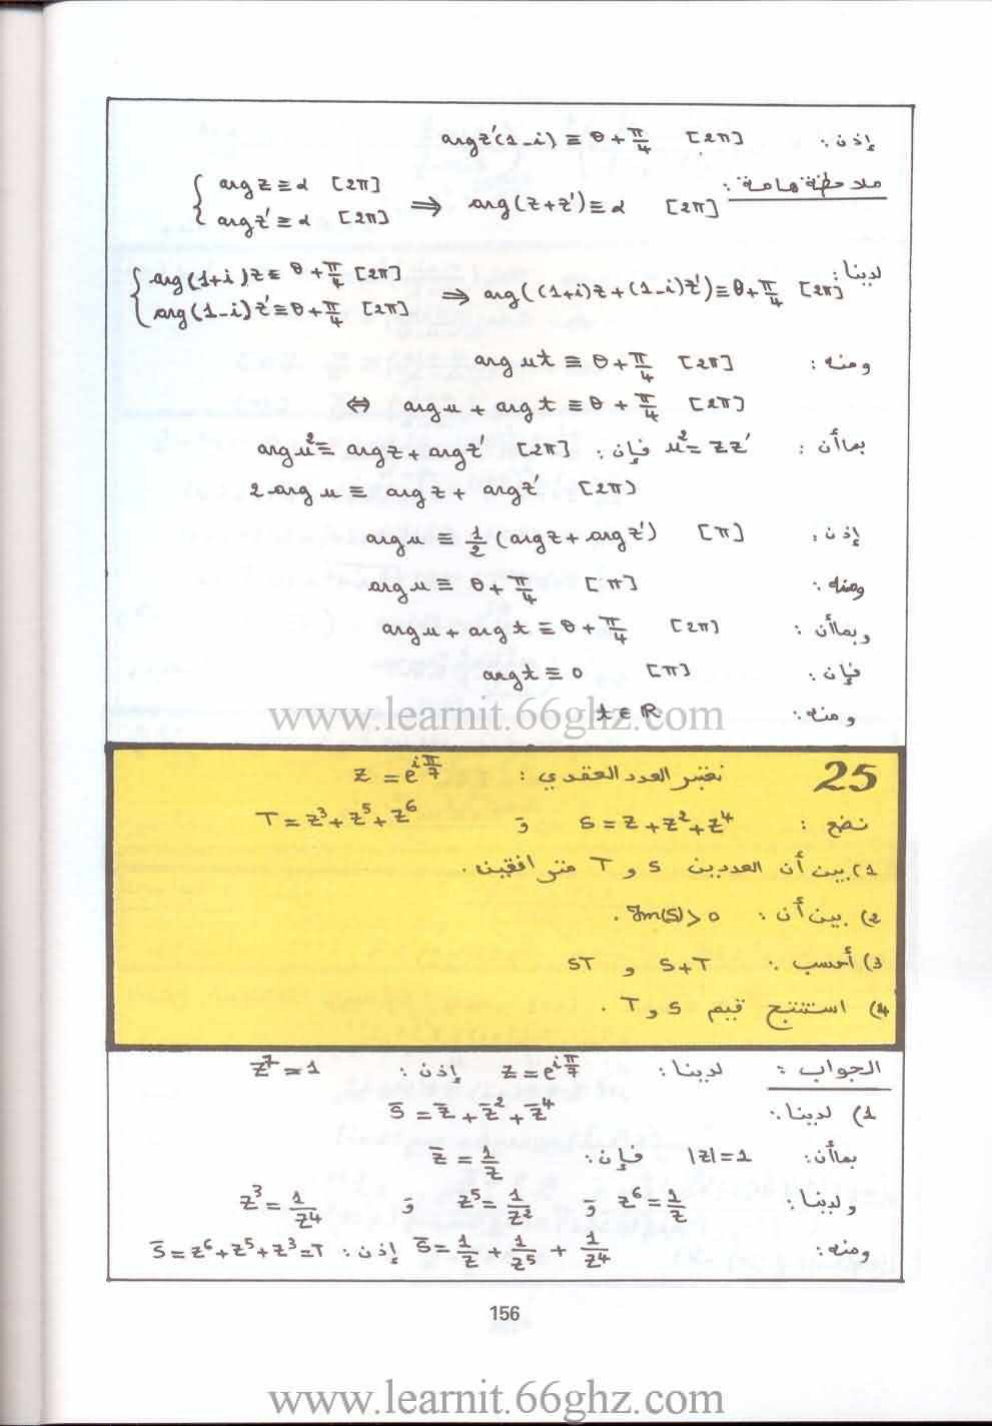 إذن : arg z'(1-i) ≡ θ + π/4 [2π]
ملاحظة هامة : { arg z ≡ α [2π] ; arg z' ≡ α [2π] ⇒ arg(z+z') ≡ α [2π]
لدينا : { arg(1+i)z ≡ θ + π/4 [2π] ; arg(1-i)z' ≡ θ + π/4 [2π] ⇒ arg((1+i)z + (1-i)z') ≡ θ + π/4 [2π]
ومنه : arg ut ≡ θ + π/4 [2π]
⇔ arg u + arg t ≡ θ + π/4 [2π]
بما أن : u² = zz' فإن : arg u² ≡ arg z + arg z' [2π]
2 arg u ≡ arg z + arg z' [2π]
إذن : arg u ≡ 1/2 (arg z + arg z') [π]
ومنه : arg u ≡ θ + π/4 [π]
وبما أن : arg u + arg t ≡ θ + π/4 [2π]
فإن : arg t ≡ 0 [π]
ومنه : t ∈ ℝ
www.learnit.66ghz.com
25 نعتبر العدد العقدي : z = e^(iπ/7)
نضع : S = z + z² + z⁴ و T = z³ + z⁵ + z⁶
1) بين أن العددين S و T مترافقين .
2) بين أن : Im(S) > 0 .
3) أحسب : S+T و ST
4) استنتج قيم S و T .
الجواب : لدينا : z = e^(iπ/7) إذن : z⁷ = 1
1) لدينا : S̄ = z̄ + z̄² + z̄⁴
بما أن : |z| = 1 فإن : z̄ = 1/z
ولدينا : z⁶ = 1/z و z⁵ = 1/z² و z³ = 1/z⁴
ومنه : S̄ = 1/z + 1/z⁵ + 1/z⁴ إذن : S̄ = z⁶ + z⁵ + z³ = T
156
www.learnit.66ghz.com